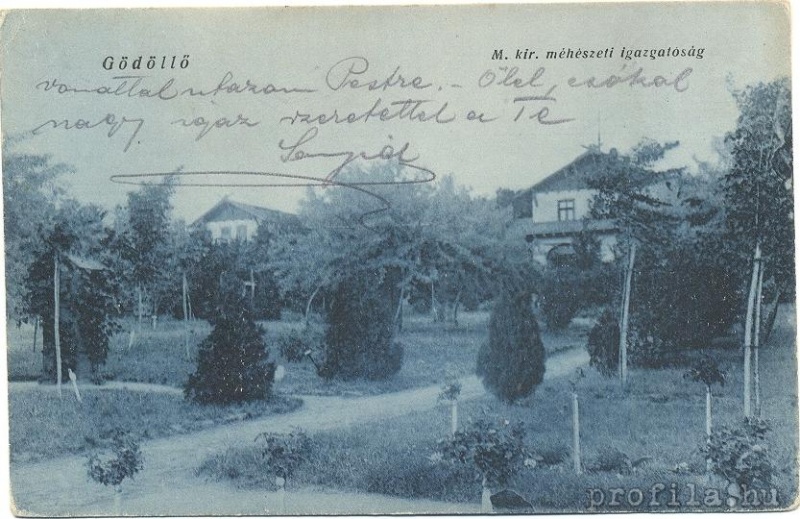 Gödöllő
M. kir. méhészeti igazgatóság
vonattal utazom Pestre. - Ölel, csókol
nagy igaz szeretettel a Te
profila.hu